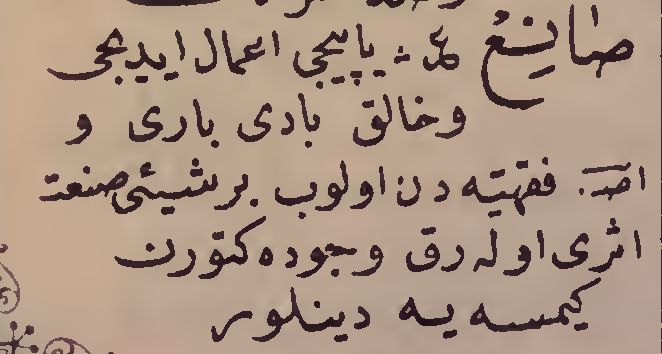 صانع ع ث یاپیجی اعمال ایدیجی
وخالق بادی باری و
اصـ. فقهیه دن اولوب برشیئی صنعت
اثری اوله رق وجوده کتورن
کیمسه یه دینلور